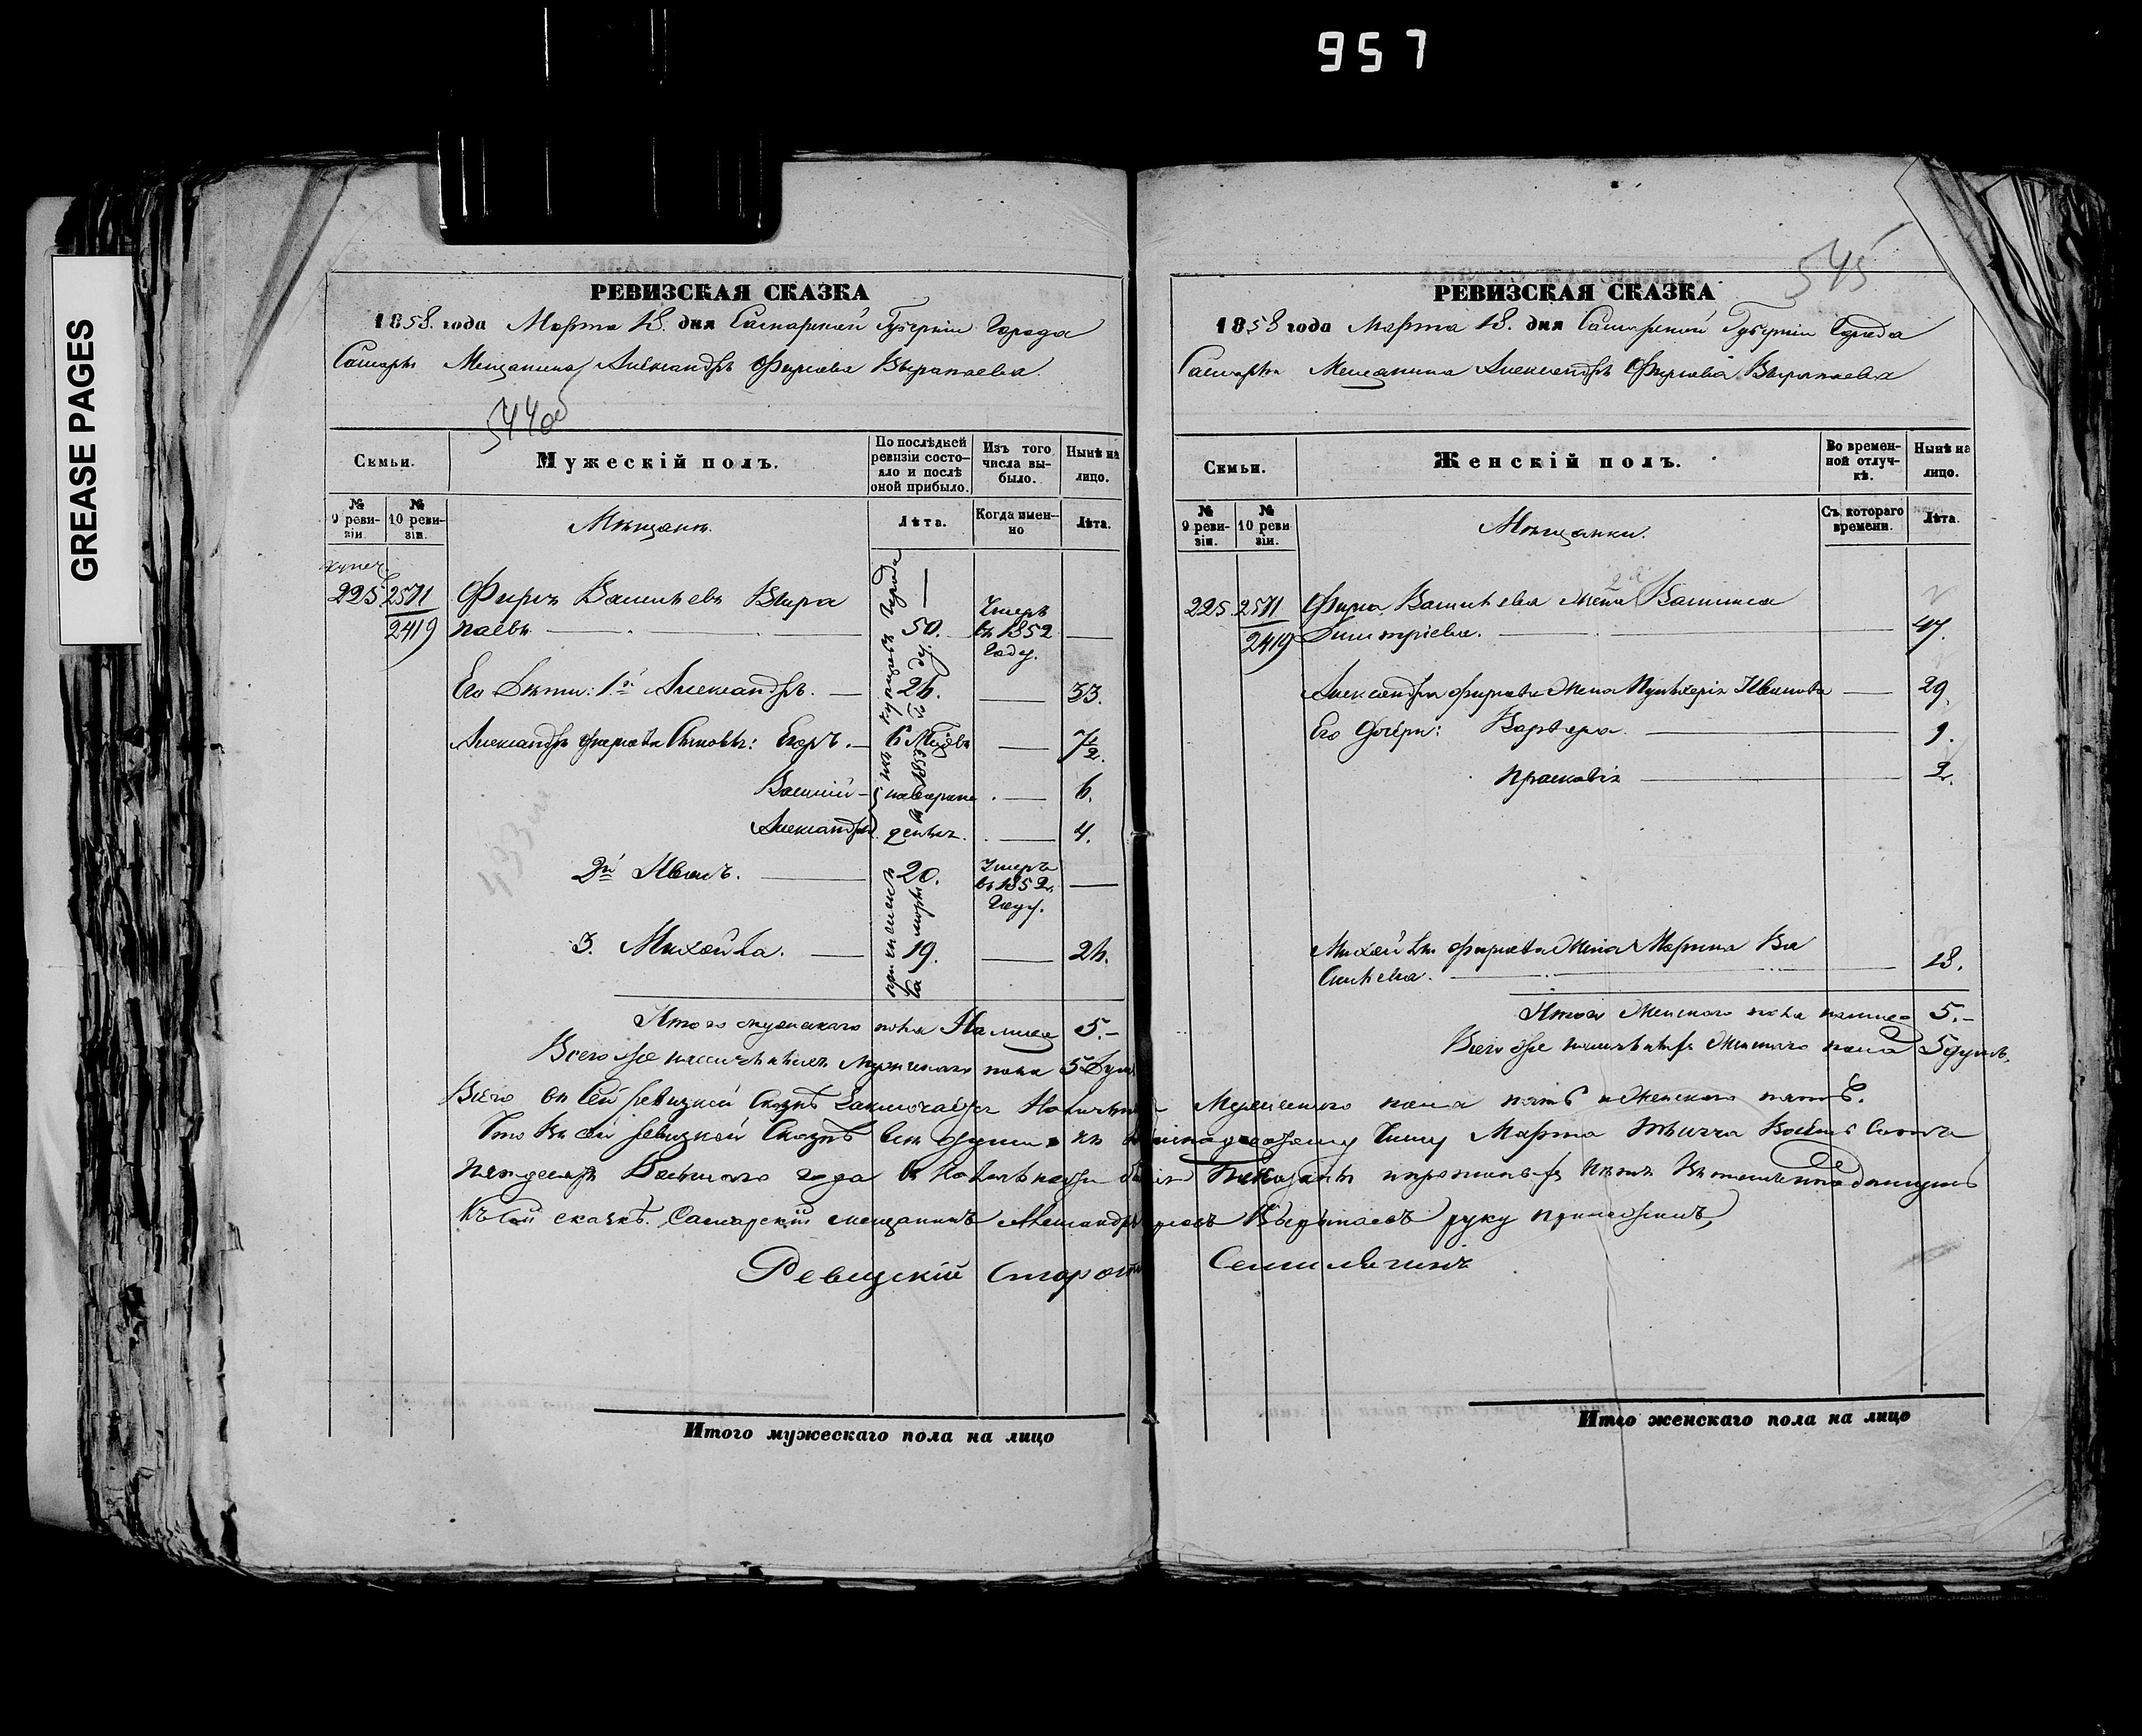 957
GREASE PAGES
РЕВИЗСКАЯ СКАЗКА
1858. года Марта 18. дня Самарской Губернии Города
Самары Мещанина Александръ Фирсова Вырыпаева
544об
Семьи.
Мужескій полъ.
По послѣдней ревизіи состояло и послѣ оной прибыло.
Изъ того числа выбыло.
Нынѣ на лицо.
№ 9 ревизіи.
№ 10 ревизіи.
Мѣщане.
Лѣта.
Когда именно
Лѣта.
купеч.
225 2571 Фирсъ Васильевъ Выры
2419 паевъ 50. Умеръ въ 1852 Году.
Его Дѣти: 1й Александръ. 26. 33.
Александра Фирсова Сыновья: Егоръ. 6 Мцовъ 7½.
Василій новорож 6.
Александръ денъ. 4.
2й Иванъ. 20. Умеръ въ 1852 Году.
3. Михайла. 19. 26.
Итого мужескаго пола На лице 5.-
Всего же наличныхъ Мужескаго пола 5 Душъ
РЕВИЗСКАЯ СКАЗКА
545
1858 года Марта 18. дня Самарской Губерніи Города
Самары Мещанина Александръ Фирсова Вырыпаева
Семьи.
Женскій полъ.
Во временной отлучкѣ.
Нынѣ на лицо.
№ 9 ревизіи.
№ 10 ревизіи.
Мѣщанки.
Съ котораго времени.
Лѣта.
225. 2571 Фирса Васильева жена Васильева
2419 Дмитріева. 47.
Александра Фирсова жена Пульхерія Иванова 29.
Его Дочери: Варвара. 9.
Прасковія 2.
Михайлы Фирсова жена Марина Ва
сильева. 18.
Итого Женскаго пола налице 5.-
Всего же наличныхъ Женскаго пола 5 душъ.
Всего въ Сей ревизкой Сказкѣ Заключается Наличныхъ Мужескаго пола пять и Женскаго пять.
Что въ сей ревизкой Сказкѣ всѣ души къ Марта Тысяча Восемь Сотъ
пятдесятъ Восьмого года
Къ сей сказкѣ. Самарскій мещанинъ Александръ Фирсовъ Вырыпаевъ руку приложилъ,
Ревизскій Староста
Итого мужескаго пола на лицо
Итого женскаго пола на лицо